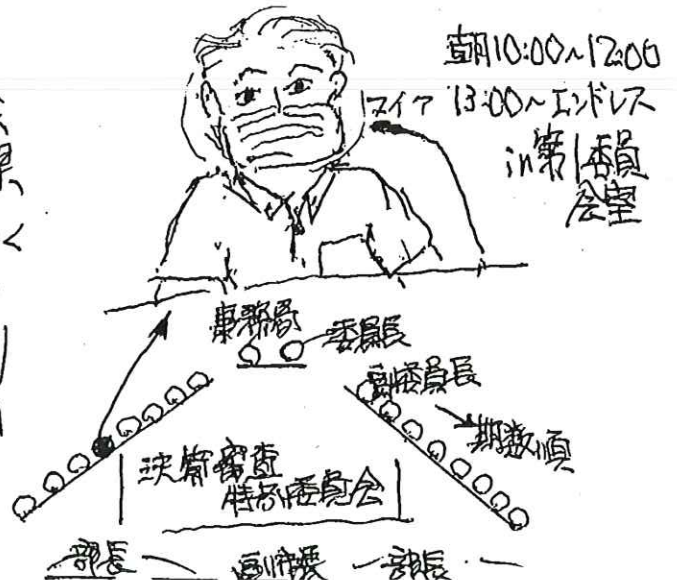 朝10:00~12:00
マイク 13:00~エンドレス
in第1委員
会室
事務局
委員長
副委員長
期数順
決算審査
特別委員会
部長
副市長
部長